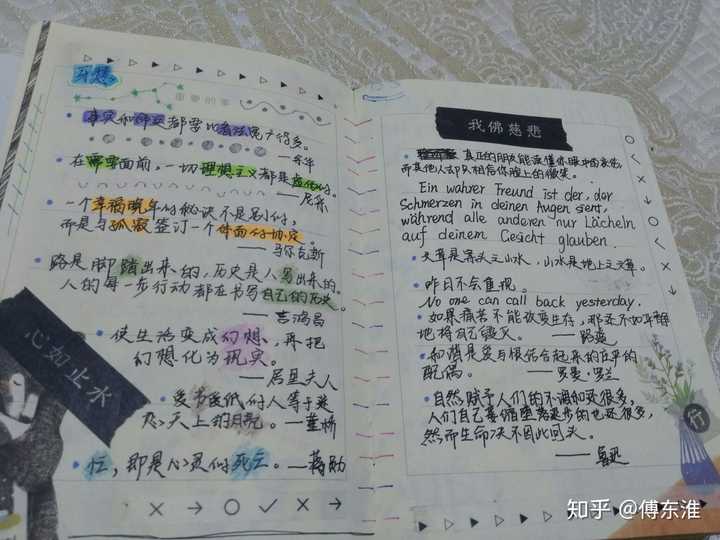 牙慧
事实和研究都需比看法宽广得多。
——余华
在需要面前，一切理想主义都是虚伪的。
——尼采
一个幸福晚年的秘诀不是别的，
而是与孤寂签订一个体面的协定。
——马尔克斯
路是脚踏出来的，历史是人写出来的。
人的每一步行动都在书写自己的历史。
——吉鸿昌
使生活变成幻想，再把
幻想化为现实。
——居里夫人
爱书的人等于
天上的月亮。
忙，即是心灵的死亡。
心如止水
我佛慈悲
真正的朋友能读懂你眼中的哀伤，
而其他人却只相信你脸上的微笑。
Ein wahrer Freund ist der, der
Schmerzen in deinen Augen sieht,
während alle anderen nur Lächeln
auf deinem Gesicht glauben.
文章是案头之山水，山水是地上之文章。
昨日不会重现。
No one can call back yesterday.
如果痛苦不能改变生存，那还不如平静
地将自己毁灭。——路遥
和谐是爱与恨结合起来的庄严的
配偶。——罗曼·罗兰
自然赋予人们的不调和还很多，
人们自己萎缩堕落退步的也还很多，
然而生命决不因此回头。
——鲁迅
行
知乎 @傅东淮